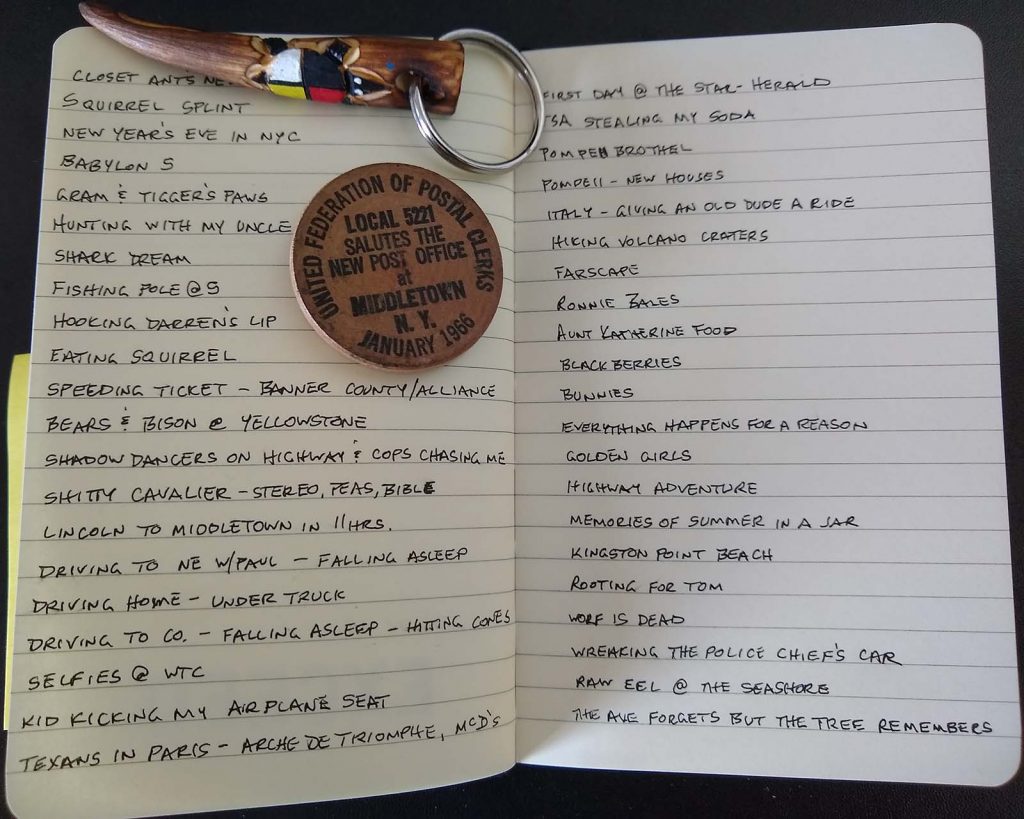 CLOSET ANTS NE
SQUIRREL SPLINT
NEW YEAR'S EVE IN NYC
BABYLON 5
GRAM & TIGGER'S PAWS
HUNTING WITH MY UNCLE
SHARK DREAM
FISHING POLE @ 5
HOOKING DARREN'S LIP
EATING SQUIRREL
SPEEDING TICKET - BANNER COUNTY/ALLIANCE
BEARS & BISON @ YELLOWSTONE
SHADOW DANCERS ON HIGHWAY & COPS CHASING ME
SHITTY CAVALIER - STEREO, PEAS, BIBLE
LINCOLN TO MIDDLETOWN IN 11 HRS.
DRIVING TO NE W/PAUL - FALLING ASLEEP
DRIVING HOME - UNDER TRUCK
DRIVING TO CO. - FALLING ASLEEP - HITTING CONES
SELFIES @ WTC
KID KICKING MY AIRPLANE SEAT
TEXANS IN PARIS - ARCHE DE TRIOMPHE, McD'S
UNITED FEDERATION OF POSTAL CLERKS
LOCAL 5221
SALUTES THE
NEW POST OFFICE
at
MIDDLETOWN
N.Y.
JANUARY 1966
FIRST DAY @ THE STAR-HERALD
TSA STEALING MY SODA
POMPEII BROTHEL
POMPEII - NEW HOUSES
ITALY - GIVING AN OLD DUDE A RIDE
HIKING VOLCANO CRATERS
FARSCAPE
RONNIE BALES
AUNT KATHERINE FOOD
BLACKBERRIES
BUNNIES
EVERYTHING HAPPENS FOR A REASON
GOLDEN GIRLS
HIGHWAY ADVENTURE
MEMORIES OF SUMMER IN A JAR
KINGSTON POINT BEACH
ROOTING FOR TOM
WORF IS DEAD
WREAKING THE POLICE CHIEF'S CAR
RAW EEL @ THE SEASHORE
THE AXE FORGETS BUT THE TREE REMEMBERS